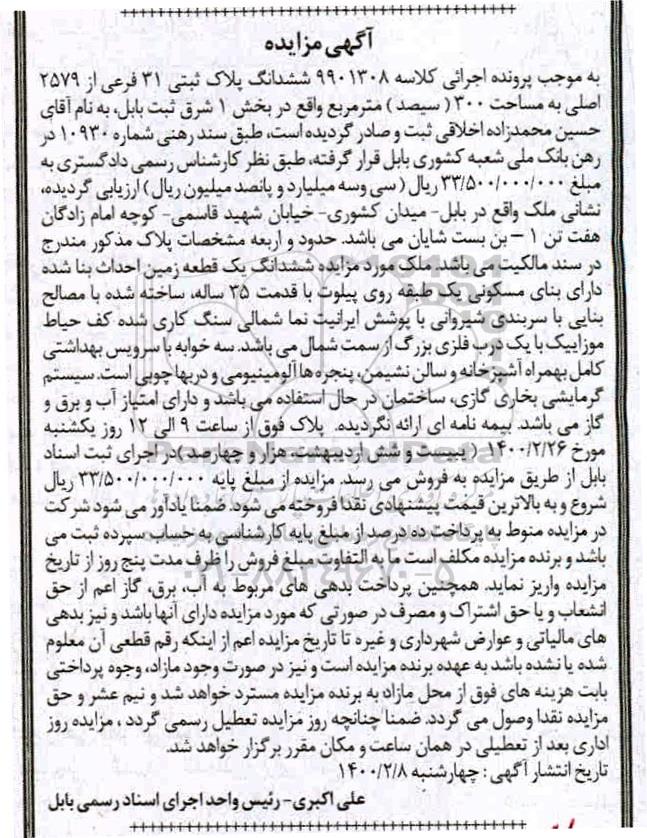 آگهی مزایده
به موجب پرونده اجرائی کلاسه ۹۹۰۱۳۰۸ ششدانگ پلاک ثبتی ۳۱ فرعی از ۲۵۷۹
اصلی به مساحت ۳۰۰ ( سیصد ) مترمربع واقع در بخش ۱ شرق ثبت بابل، به نام آقای
حسین محمدزاده اخلاقی ثبت و صادر گردیده است، طبق سند رهنی شماره ۱۰۹۳۰ در
رهن بانک ملی شعبه کشوری بابل قرار گرفته، طبق نظر کارشناس رسمی دادگستری به
مبلغ ۳۳/۵۰۰/۰۰۰/۰۰۰ ریال ( سی وسه میلیارد و پانصد میلیون ریال ) ارزیابی گردیده،
نشانی ملک واقع در بابل- میدان کشوری- خیابان شهید قاسمی- کوچه امام زادگان
هفت تن ۱ – بن بست شایان می باشد. حدود و اربعه مشخصات پلاک مذکور مندرج
در سند مالکیت می باشد. ملک مورد مزایده ششدانگ یک قطعه زمین احداث بنا شده
دارای بنای مسکونی یک طبقه روی پیلوت با قدمت ۳۵ ساله، ساخته شده با مصالح
بنایی با سربندی شیروانی با پوشش ایرانیت نما شمالی سنگ کاری شده کف حیاط
موزاییک با یک درب فلزی بزرگ از سمت شمال می باشد. سه خوابه با سرویس بهداشتی
کامل بهمراه آشپزخانه و سالن نشیمن، پنجره ها آلومینیومی و دربها چوبی است. سیستم
گرمایشی بخاری گازی، ساختمان در حال استفاده می باشد و دارای امتیاز آب و برق و
گاز می باشد. بیمه نامه ای ارائه نگردیده. پلاک فوق از ساعت ۹ الی ۱۲ روز یکشنبه
مورخ ۱۴۰۰/۲/۲۶ ( بیست و شش اردیبهشت هزار و چهارصد )در اجرای ثبت اسناد
بابل از طریق مزایده به فروش می رسد. مزایده از مبلغ پایه ۳۳/۵۰۰/۰۰۰/۰۰۰ ریال
شروع و به بالاترین قیمت پیشنهادی نقدا فروخته می شود. ضمنا یادآور می شود شرکت
در مزایده منوط به پرداخت ده درصد از مبلغ پایه کارشناسی به حساب سپرده ثبت می
باشد و برنده مزایده مکلف است ما به التفاوت مبلغ فروش را ظرف مدت پنج روز از تاریخ
مزایده واریز نماید. همچنین پرداخت بدهی های مربوط به آب، برق، گاز اعم از حق
انشعاب و یا حق اشتراک و مصرف در صورتی که مورد مزایده دارای آنها باشد و نیز بدهی
های مالیاتی و عوارض شهرداری و غیره تا تاریخ مزایده اعم از اینکه رقم قطعی آن معلوم
شده یا نشده باشد به عهده برنده مزایده است و نیز در صورت وجود مازاد، وجوه پرداختی
بابت هزینه های فوق از محل مازاد به برنده مزایده مسترد خواهد شد و نیم عشر و حق
مزایده نقدا وصول می گردد. ضمنا چنانچه روز مزایده تعطیل رسمی گردد ، مزایده روز
اداری بعد از تعطیلی در همان ساعت و مکان مقرر برگزار خواهد شد.
تاریخ انتشار آگهی : چهارشنبه ۱۴۰۰/۲/۸
علی اکبری- رئیس واحد اجرای اسناد رسمی بابل